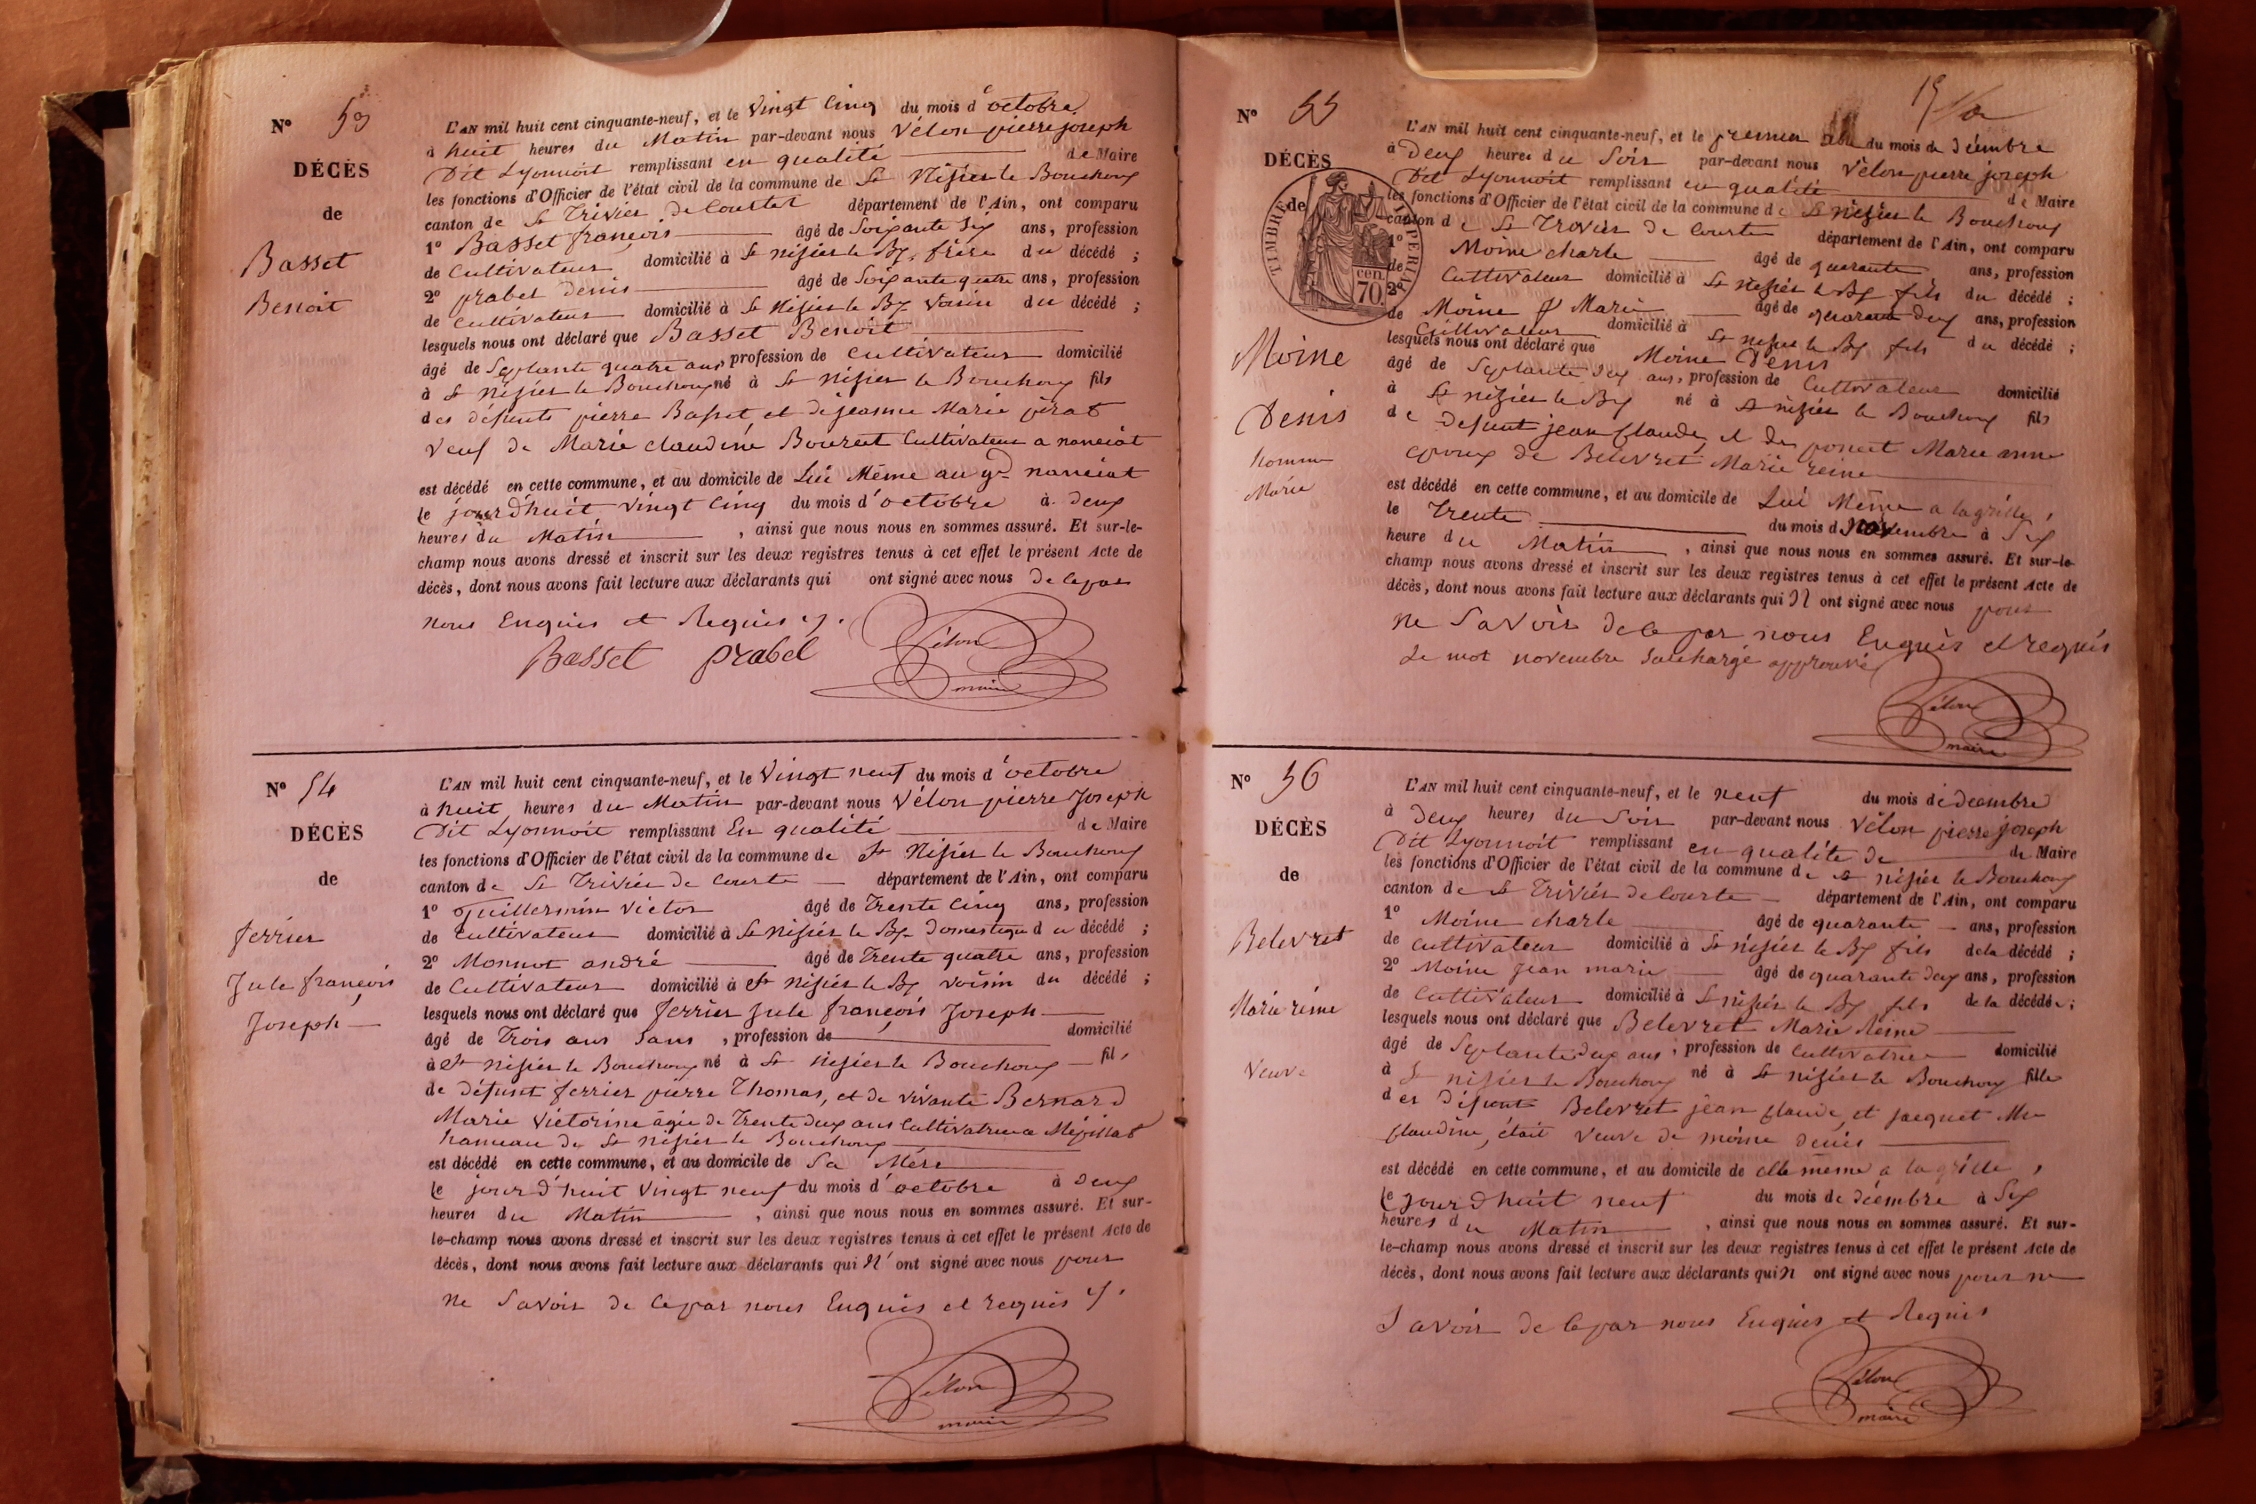 N° 53
DÉCÈS
de
Basset
Benoit
L'AN mil huit cent cinquante-neuf, et le vingt Cinq du mois d'octobre
à huit heures du Matin par-devant nous Vélon pierre joseph
Dit Lyonnoit remplissant en qualité de Maire
les fonctions d'Officier de l'état civil de la commune de St Nisier le Bouchoux
canton de St Trivier de Courtes département de l'Ain, ont comparu
1° Basset françois âgé de Soixante Six ans, profession
de Cultivateur domicilié à St nisier le Bx, frère du décédé ;
2° prabel Denis âgé de Soixante quatre ans, profession
de Cultivateur domicilié à St Nisier le Bx Voisin du décédé ;
lesquels nous ont déclaré que Basset Benoit
âgé de Septante quatre ans, profession de Cultivateur domicilié
à St Nisier le Bouchoux né à St Nisier le Bouchoux fils
des défunts pierre Basset et de jeanne Marie
Veuf de Marie Claudine Cultivateur a nanciat
est décédé en cette commune, et au domicile de Lui Même au gd nanciat
le jourd'huit Vingt Cinq du mois d'octobre à deux
heures du Matin , ainsi que nous nous en sommes assuré. Et sur-le-
champ nous avons dressé et inscrit sur les deux registres tenus à cet effet le présent Acte de
décès, dont nous avons fait lecture aux déclarants qui ont signé avec nous de Cepar
nous Enquis et Requis
Basset prabel Vélon
maire
N° 54
DÉCÈS
de
ferrier
Jule françois
Joseph
L'AN mil huit cent cinquante-neuf, et le Vingt neuf du mois d'octobre
à huit heures du Matin par-devant nous Vélon pierre Joseph
Dit Lyonnoit remplissant En qualité de Maire
les fonctions d'Officier de l'état civil de la commune de St Nisier le Bouchoux
canton de St Trivier de Courte département de l'Ain, ont comparu
1° Guillermin Victor âgé de Trente Cinq ans, profession
de Cultivateur domicilié à St Nisier le Bx Domestique du décédé ;
2° Monnot andré âgé de Trente quatre ans, profession
de Cultivateur domicilié à St Nisier le Bx voisin du décédé ;
lesquels nous ont déclaré que ferrier Jule françois Joseph
âgé de Trois ans Sans , profession de domicilié
à St nisier le Bouchoux né à St Nisier le Bouchoux fils
de défunt ferrier pierre Thomas, et de vivante Bernard
Marie Victorine âgée de Trente deux ans Cultivatrice a
hameau de St Nisier le Bouchoux
est décédé en cette commune, et au domicile de Sa Mère
le jourd'huit Vingt neuf du mois d'octobre à Deux
heures du Matin , ainsi que nous nous en sommes assuré. Et sur-
le-champ nous avons dressé et inscrit sur les deux registres tenus à cet effet le présent Acte de
décès, dont nous avons fait lecture aux déclarants qui N' ont signé avec nous pour
ne Savoir de Cepar nous Enquis et requis
Vélon
maire
N° 55
DÉCÈS
de
TIMBRE IMPERIAL
70 cen.
Moine
Denis
homme
Marié
L'AN mil huit cent cinquante-neuf, et le premier du mois de Décembre
à Deux heures du Soir par-devant nous Vélon pierre joseph
Dit Lyonnoit remplissant en qualité de Maire
les fonctions d'Officier de l'état civil de la commune de St Nisier le Bouchoux
canton de St Trivier de Courte département de l'Ain, ont comparu
1° Moine charle âgé de quarante ans, profession
de Cultivateur domicilié à St nisier le Bx fils du décédé ;
2° Moine J Marie âgé de quarante deux ans, profession
de Cultivateur domicilié à St nisier le Bx fils du décédé ;
lesquels nous ont déclaré que Moine Denis
âgé de Septante Deux ans, profession de Cultivateur domicilié
à St nizier le Bx né à St nizier le Bouchoux fils
de Defunt jean Claude, et de poncet Marie anne
epoux de Belevret Marie reine
est décédé en cette commune, et au domicile de Lui Même a la grille,
le Trente du mois de Novembre à Six
heure du Matin , ainsi que nous nous en sommes assuré. Et sur-le-
champ nous avons dressé et inscrit sur les deux registres tenus à cet effet le présent Acte de
décès, dont nous avons fait lecture aux déclarants qui N ont signé avec nous pour
ne Savoir de Cepar nous Enquis et requis
Le mot novembre Surchargé approuvé
Vélon
maire
N° 56
DÉCÈS
de
Belevret
Marie reine
Veuve
L'AN mil huit cent cinquante-neuf, et le neuf du mois de decembre
à Deux heures du Soir par-devant nous Vélon pierre joseph
Dit Lyonnoit remplissant en qualité de de Maire
les fonctions d'Officier de l'état civil de la commune de St nisier le Bouchoux
canton de St Trivier de Courte département de l'Ain, ont comparu
1° Moine charle âgé de quarante ans, profession
de Cultivateur domicilié à St nisier le Bx fils de la décédé ;
2° Moine Jean marie âgé de quarante deux ans, profession
de Cultivateur domicilié à St nisier le Bx fils de la décédé ;
lesquels nous ont déclaré que Belevret Marie Reine
âgé de Septante deux ans, profession de Cultivatrice domicilié
à St nisier le Bouchoux né à St nisier le Bouchoux fille
des Défunts Belevret jean Claude, et jacquet Mie
Claudine, était Veuve de moine denis
est décédé en cette commune, et au domicile de elle même a la grille,
le jourd'huit neuf du mois de Décembre à Six
heures du Matin , ainsi que nous nous en sommes assuré. Et sur-
le-champ nous avons dressé et inscrit sur les deux registres tenus à cet effet le présent Acte de
décès, dont nous avons fait lecture aux déclarants qui N ont signé avec nous pour ne
Savoir de Cepar nous Enquis et Requis
Vélon
maire